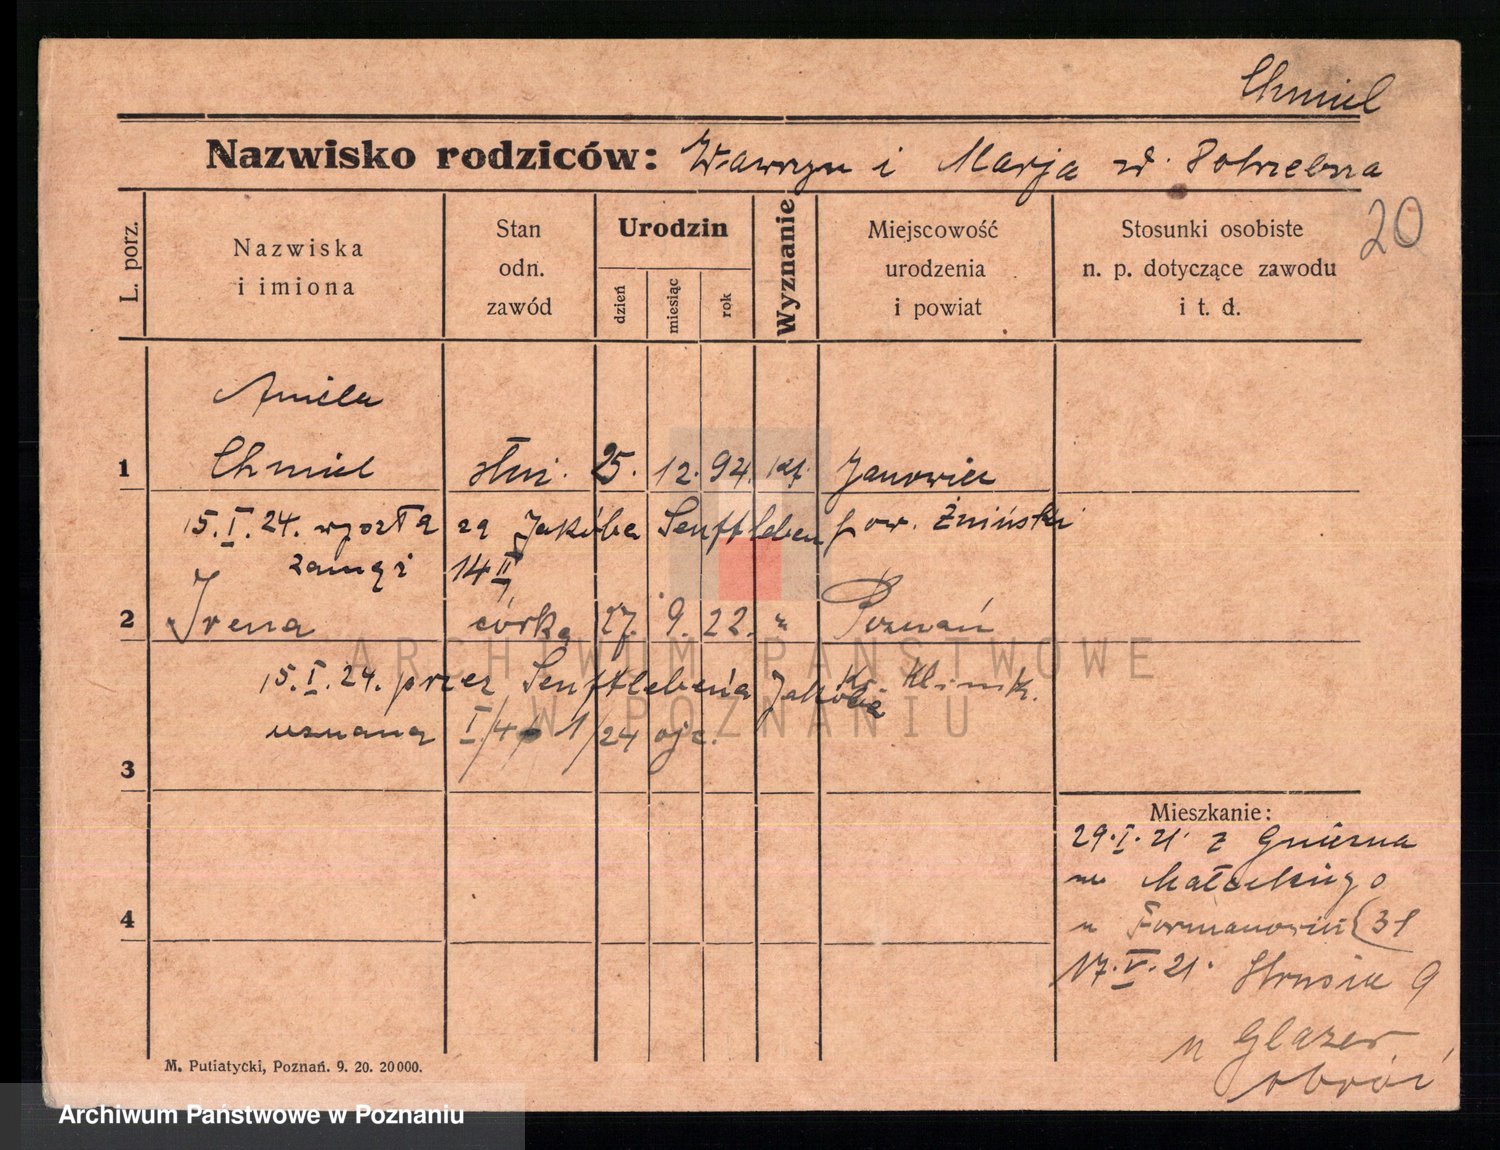 Chmiel
Nazwisko rodziców: Wawrzyn i Marja zd. Potrzebna
20
L. porz.
Nazwiska
i imiona
Stan
odn.
zawód
Urodzin
dzień
miesiąc
rok
Wyznanie
Miejscowość
urodzenia
i powiat
Stosunki osobiste
n. p. dotyczące zawodu
i t. d.
Aniela
1 Chmiel służ. 25. 12. 94. kat. Janowiec
15.I.24. wyszła za Jakóba Senftleben pow. Żniński
zamąż 14 II
2 Irena córka 27. 9. 22. " Poznań
15.I.24. przez Senftlebena Jakóba Kr. Klinik.
uznana I/4 1/24 ojc.
3
4
Mieszkanie:
29.I.21 z Gniezna
Małeckiego
u Formanowicz 31
17.V.21. Strusia 9
u Glazer
obróć
M. Putiatycki, Poznań. 9. 20. 20000.
ARCHIWUM PAŃSTWOWE
W POZNANIU
Archiwum Państwowe w Poznaniu